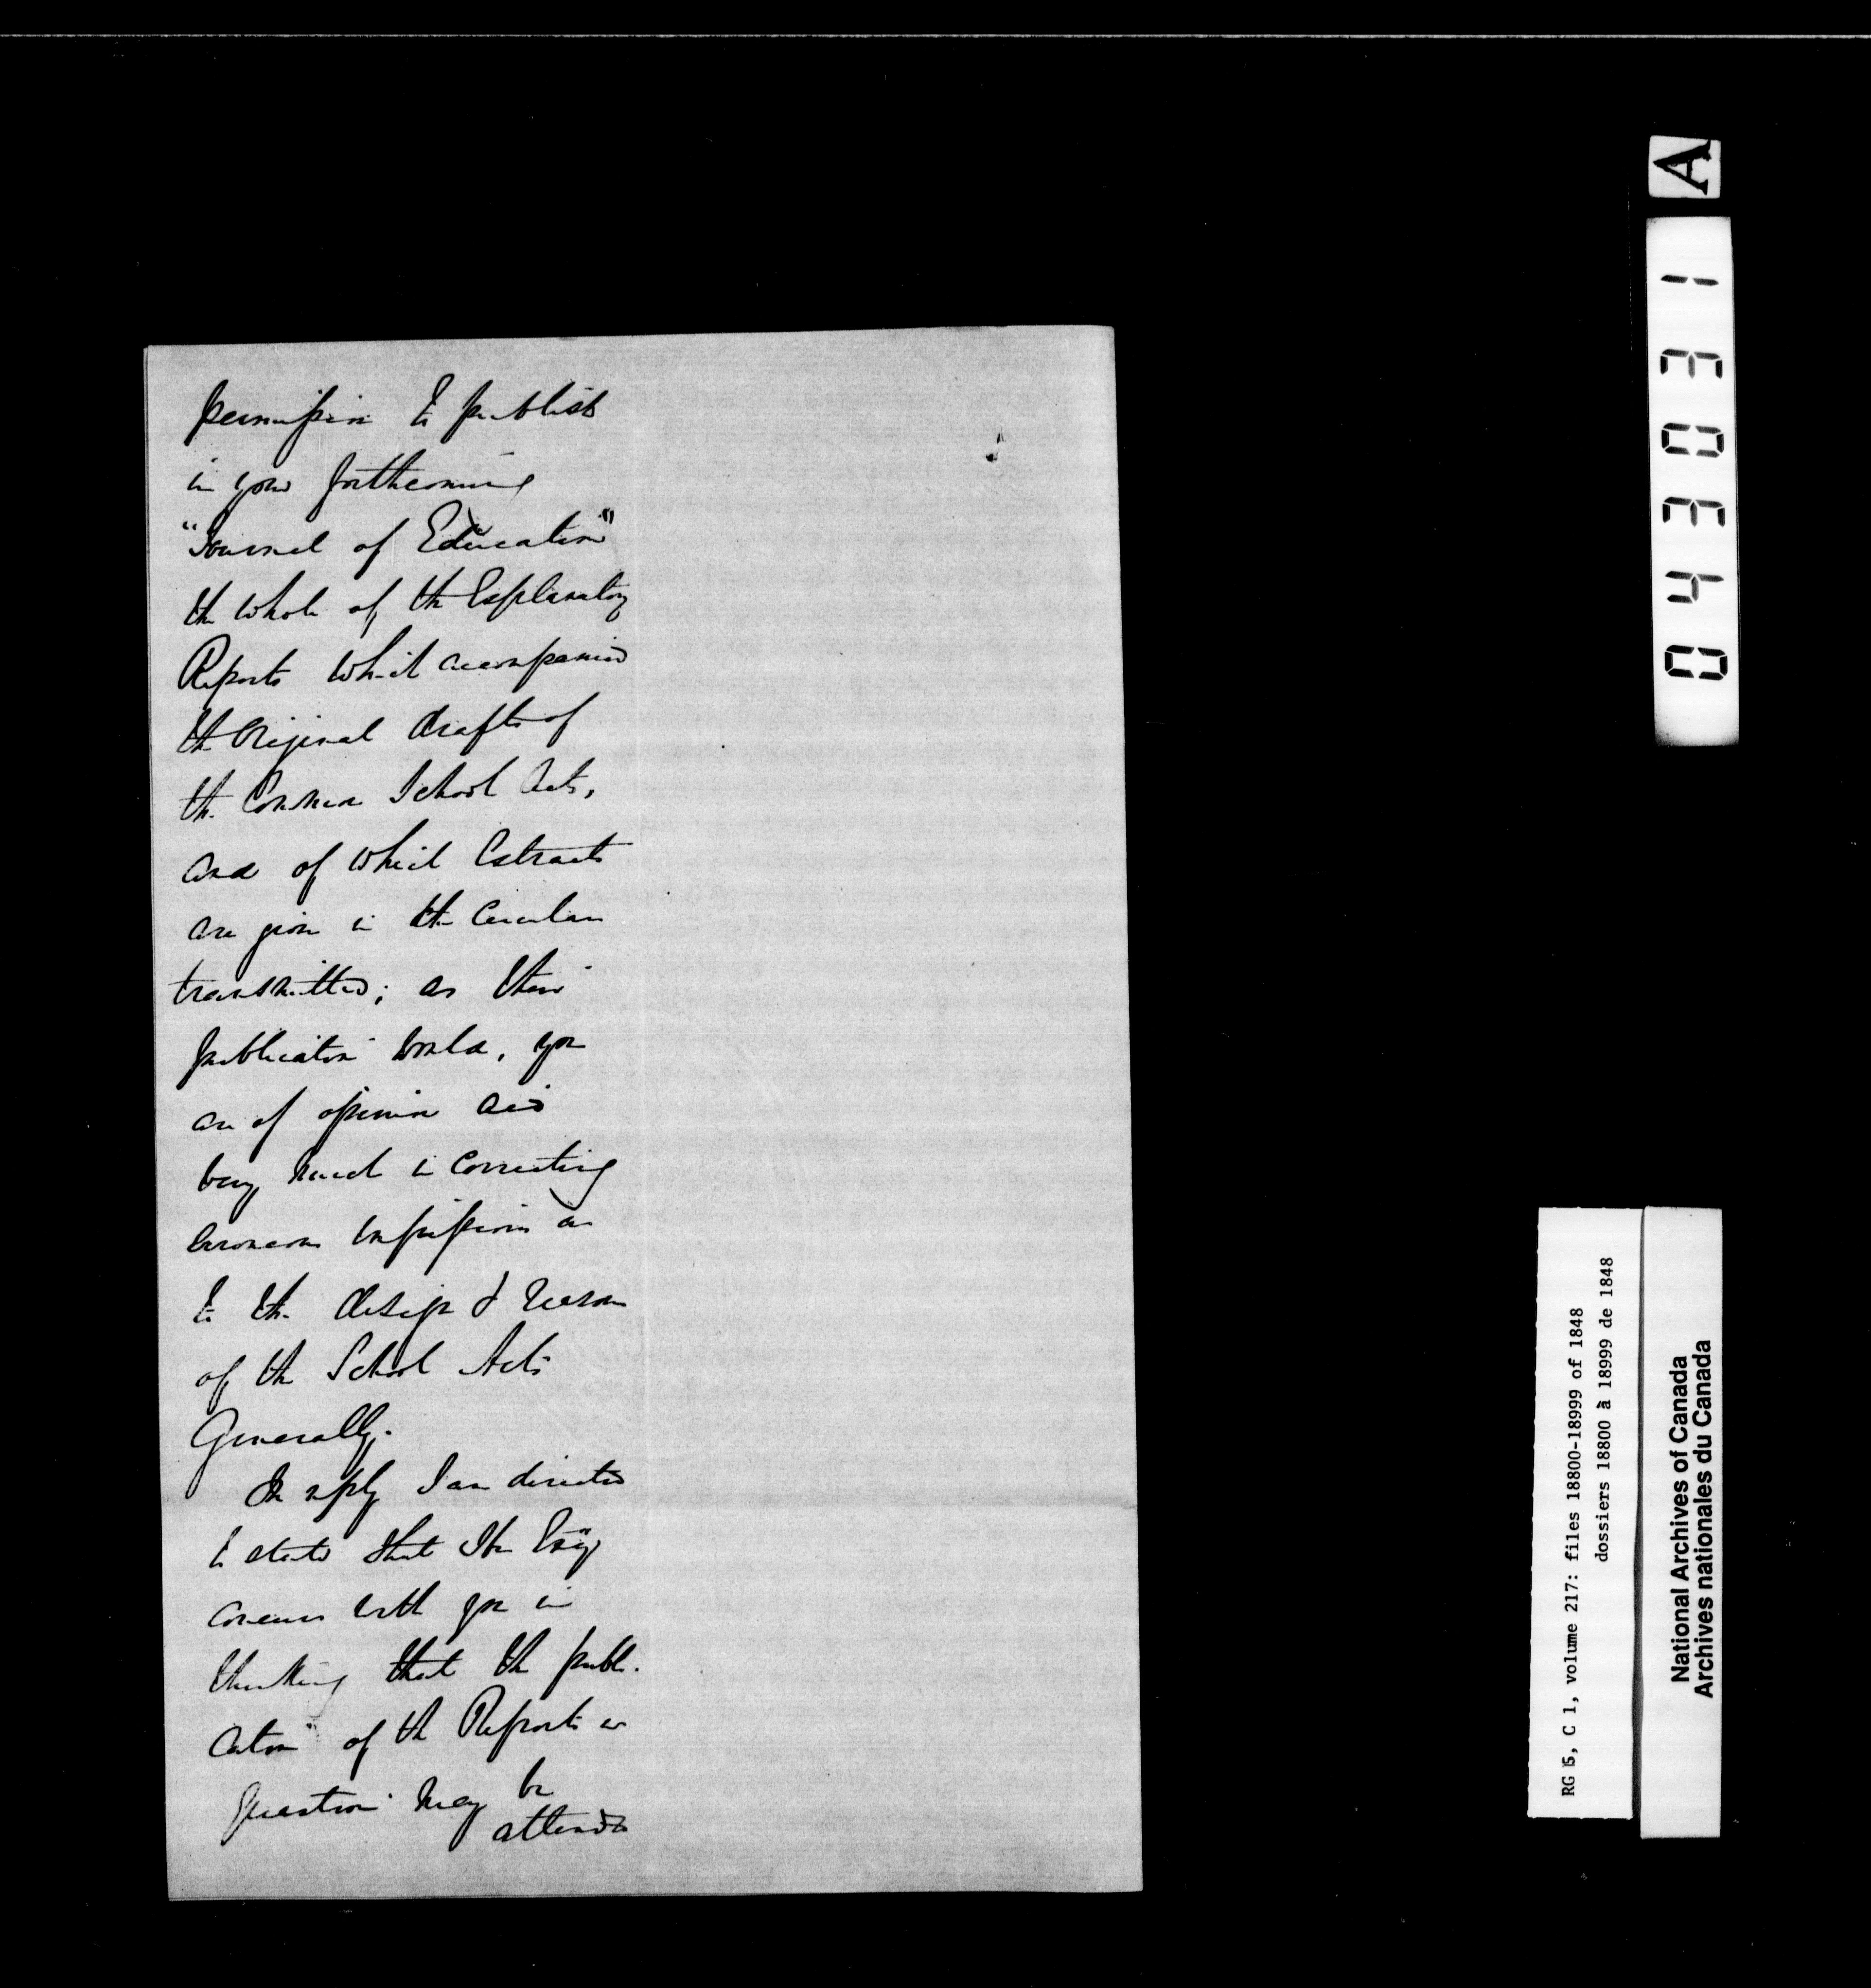 permission to publish
in your forthcoming
"Journal of Education"
the whole of the Explanatory
Reports which accompanied
the Original drafts of
the Common School Acts,
and of which Extracts
are given in the Circular
transmitted; as their
publication would, you
are of opinion aid
very much in correcting
erroneous impressions as
to the design &
of the School Acts
Generally.
In reply I am directed
to state that His Excy
concurs with you in
thinking that the publi-
cation of the Reports in
question may be
attended
A
043031
RG 5, C 1, volume 217: files 18800-18999 of 1848
dossiers 18800 à 18999 de 1848
National Archives of Canada
Archives nationales du Canada